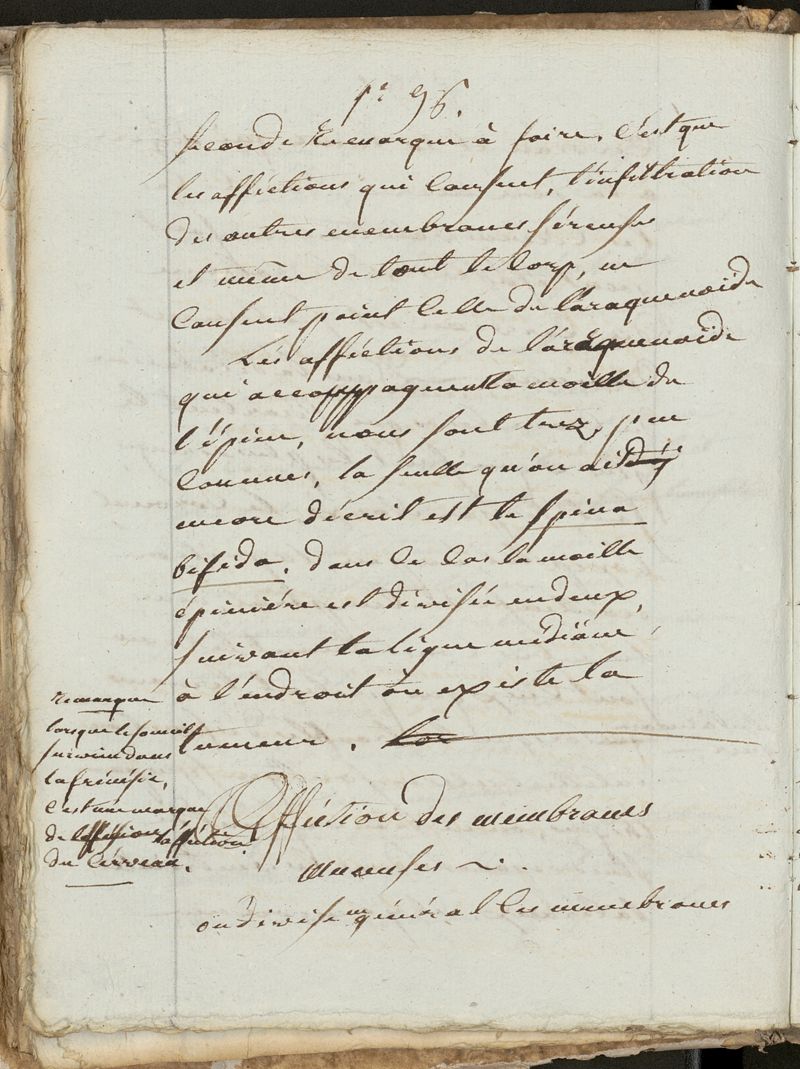 pe 96.
seconde Remarque à faire, c'est que
les affections qui causent, l'infiltration
des autres membranes séreuses
et même de tout le corp, ne
causent point celle de l'araquenoide
Les affections de l'araquenoide
qui accompagnent la moille de
l'épine, nous sont trez peu
connues, la seulle qu'on ait
encore décrit est le spina
bifida, dans ce cas la moille
épiniére est divisée en deux,
suivant la ligne médiane,
à l'endroit où existe la
tumeur.
Remarque
lorsque le someil
survien dans
la frénésie,
c'est une marque
de l'affection
du cerveau.
Affection des membranes
muqueuses
on divise en général les membranes